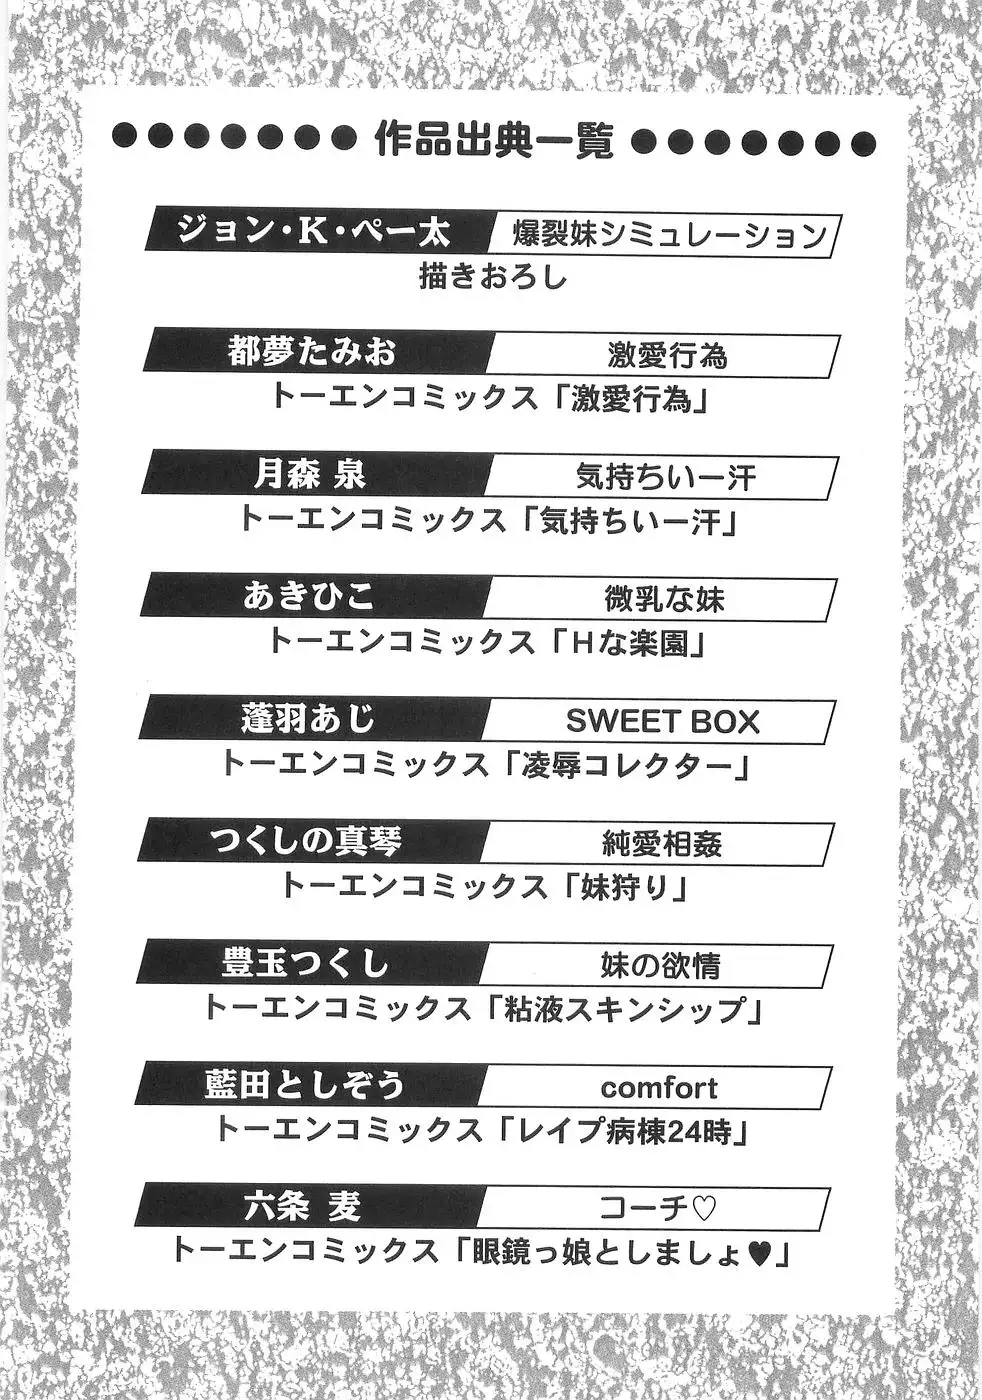 ●●●●●●● 作品出典一覧 ●●●●●●●
ジョン・K・ペー太 爆裂妹シミュレーション
描きおろし
都夢たみお 激愛行為
トーエンコミックス「激愛行為」
月森 泉 気持ちいー汗
トーエンコミックス「気持ちいー汗」
あきひこ 微乳な妹
トーエンコミックス「Hな楽園」
蓬羽あじ SWEET BOX
トーエンコミックス「凌辱コレクター」
つくしの真琴 純愛相姦
トーエンコミックス「妹狩り」
豊玉つくし 妹の欲情
トーエンコミックス「粘液スキンシップ」
藍田としぞう comfort
トーエンコミックス「レイプ病棟24時」
六条 麦 コーチ♡
トーエンコミックス「眼鏡っ娘としましょ♥」